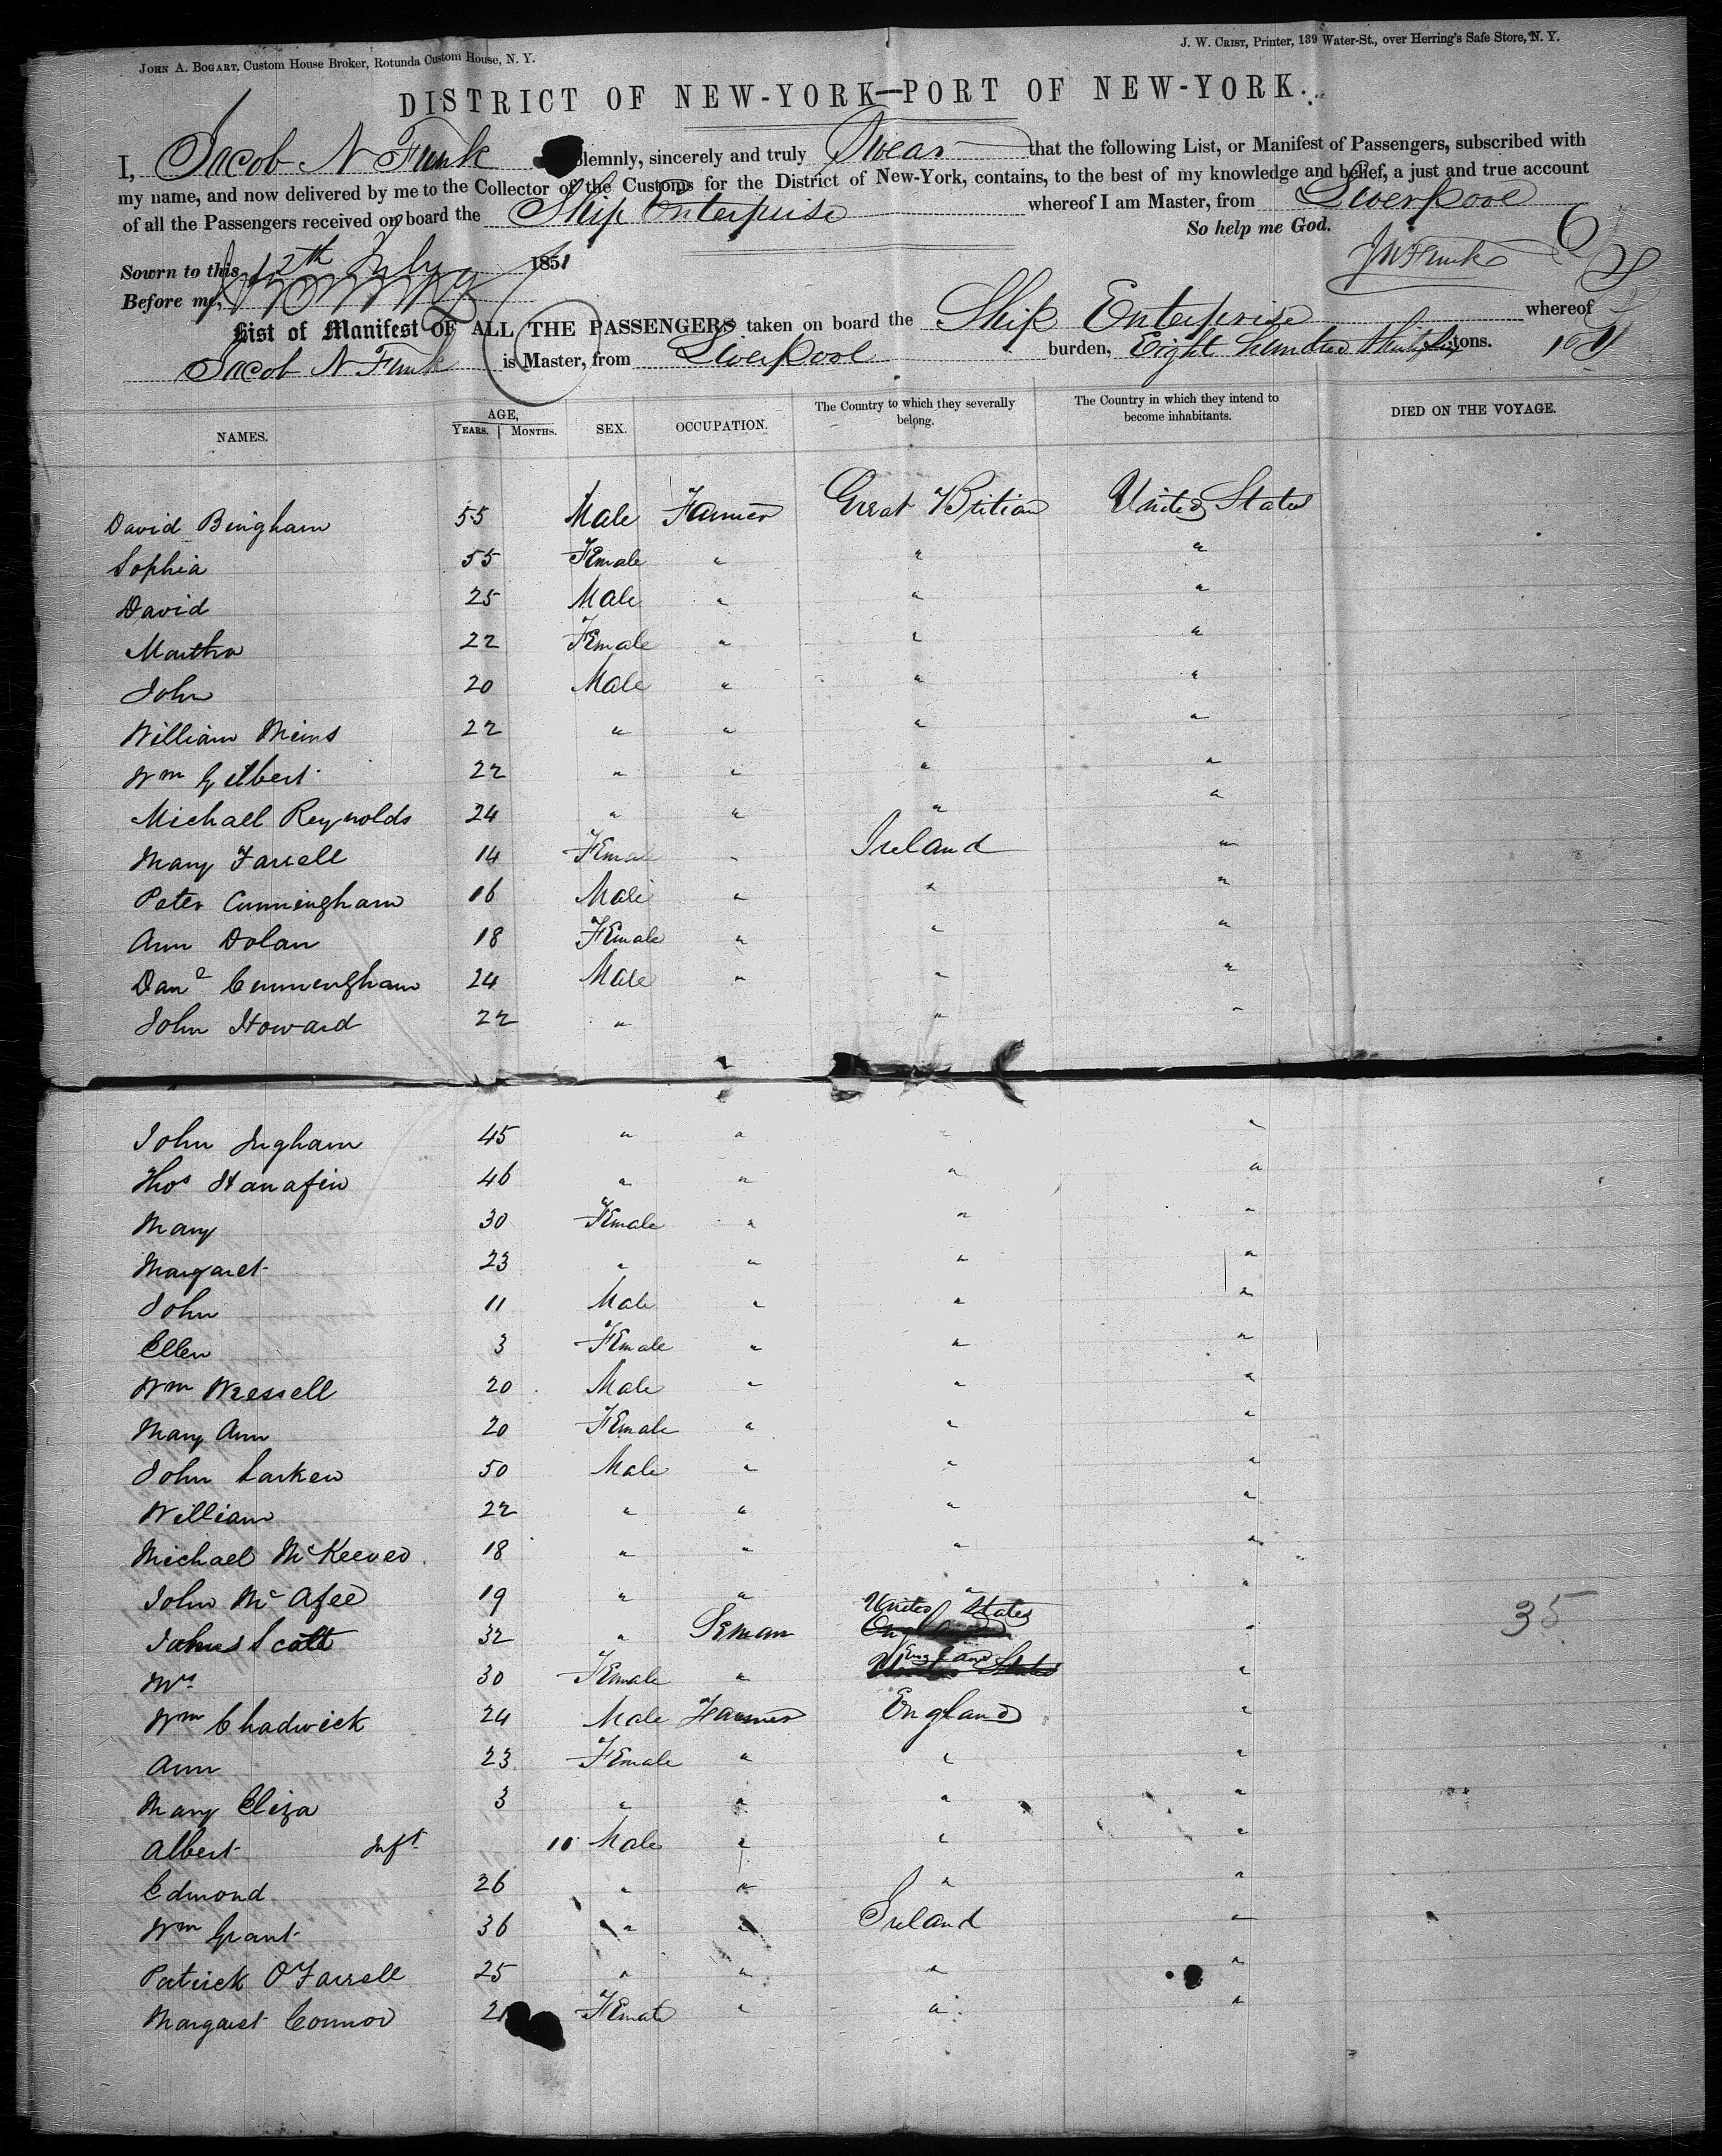 JOHN A. BOGART, Custom House Broker, Rotunda Custom House, N. Y.
J. W. CRIST, Printer, 139 Water-St., over Herring's Safe Store, N. Y.
DISTRICT OF NEW-YORK—PORT OF NEW-YORK.
I, Jacob N Funk olemnly, sincerely and truly Swear that the following List, or Manifest of Passengers, subscribed with
my name, and now delivered by me to the Collector of the Customs for the District of New-York, contains, to the best of my knowledge and belief, a just and true account
of all the Passengers received on board the Ship Enterprise whereof I am Master, from Liverpool
So help me God.
Sowrn to this 12th July 1851
J N Funk
Before me,
List of Manifest OF ALL THE PASSENGERS taken on board the Ship Enterprise whereof
Jacob N Funk is Master, from Liverpool burden, Eight hundred thirty six tons.
NAMES. AGE, YEARS. MONTHS. SEX. OCCUPATION. The Country to which they severally belong. The Country in which they intend to become inhabitants. DIED ON THE VOYAGE.
David Bingham 55 Male Farmer Great Britian United States
Sophia 55 Female " " "
David 25 Male " " "
Martha 22 Female " " "
John 20 Male " " "
William Mims 22 " " " "
Wm Gilbert 22 " " " "
Michael Reynolds 24 " " " "
Mary Farrell 14 Female " Ireland "
Peter Cunningham 16 Male " " "
Ann Dolan 18 Female " " "
Danl Cunningham 24 Male " " "
John Howard 22 " " "
John Ingham 45 " " " "
Thos Hanafin 46 " " " "
Mary 30 Female " " "
Margaret 23 " " " "
John 11 Male " " "
Ellen 3 Female " " "
Wm Wressell 20 Male " " "
Mary Ann 20 Female " " "
John Larken 50 Male " " "
William 22 " " " "
Michael McKeever 18 " " " "
John McAfee 19 " " " "
James Scott 32 " Seman United States "
35
Mrs 30 Female " England "
Wm Chadwick 24 Male Farmer England "
Ann 23 Female " " "
Mary Eliza 3 " " " "
Albert Inft 10 Male " " "
Edmond 26 " " " "
Wm Grant 36 " " Ireland "
Patrick O'Farrell 25 " " " "
Margaret Connor Female " " "